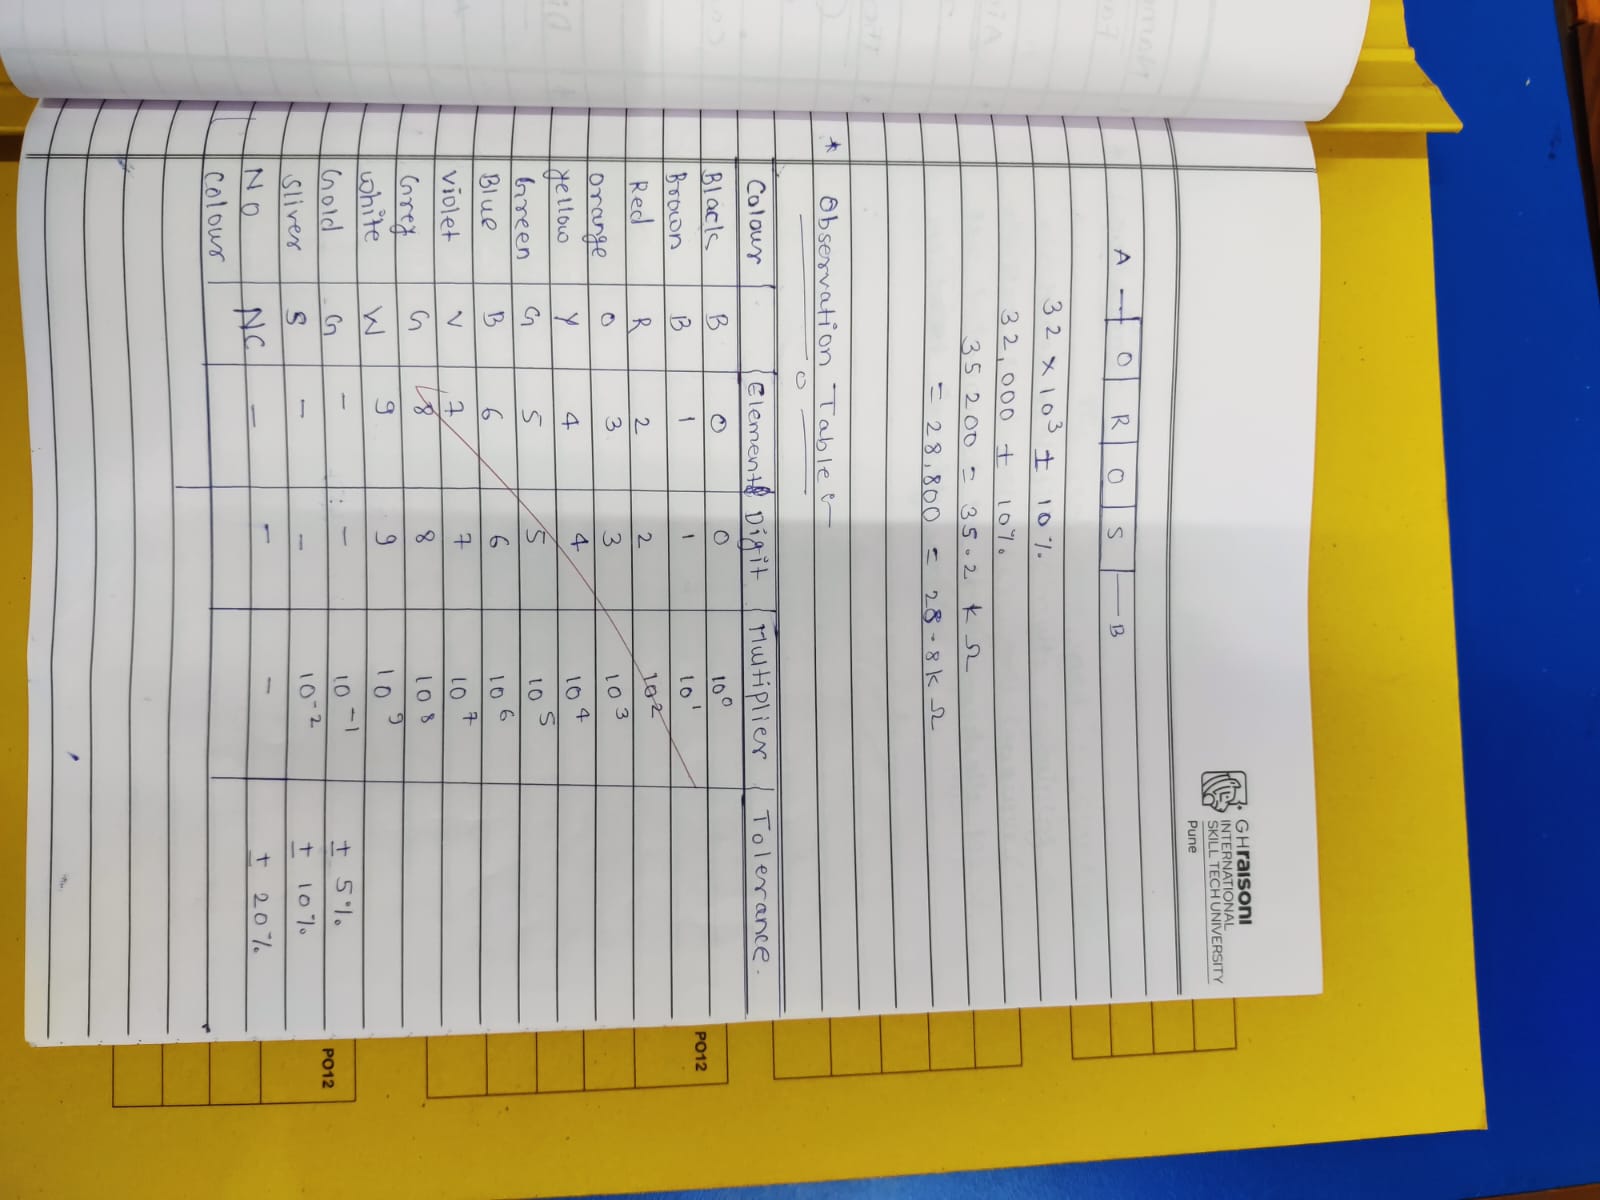 GHraisoni
INTERNATIONAL
SKILL TECH UNIVERSITY
Pune
A O R O S B
32 × 10³ ± 10%
32,000 ± 10%
35200 = 35.2 k Ω
= 28,800 = 28.8k Ω
* Observation Table :-
Colour Element Digit Multiplier Tolerance.
Black B 0 0 10⁰
Brown B 1 1 10¹
Red R 2 2 10²
Orange O 3 3 10³
Yellow Y 4 4 10⁴
Green G 5 5 10⁵
Blue B 6 6 10⁶
Violet V 7 7 10⁷
Grey G 8 8 10⁸
White W 9 9 10⁹
Gold G - - 10⁻¹ ± 5%
Sliver S - - 10⁻² ± 10%
NO NC - - - ± 20%
Colour
PO12
PO12